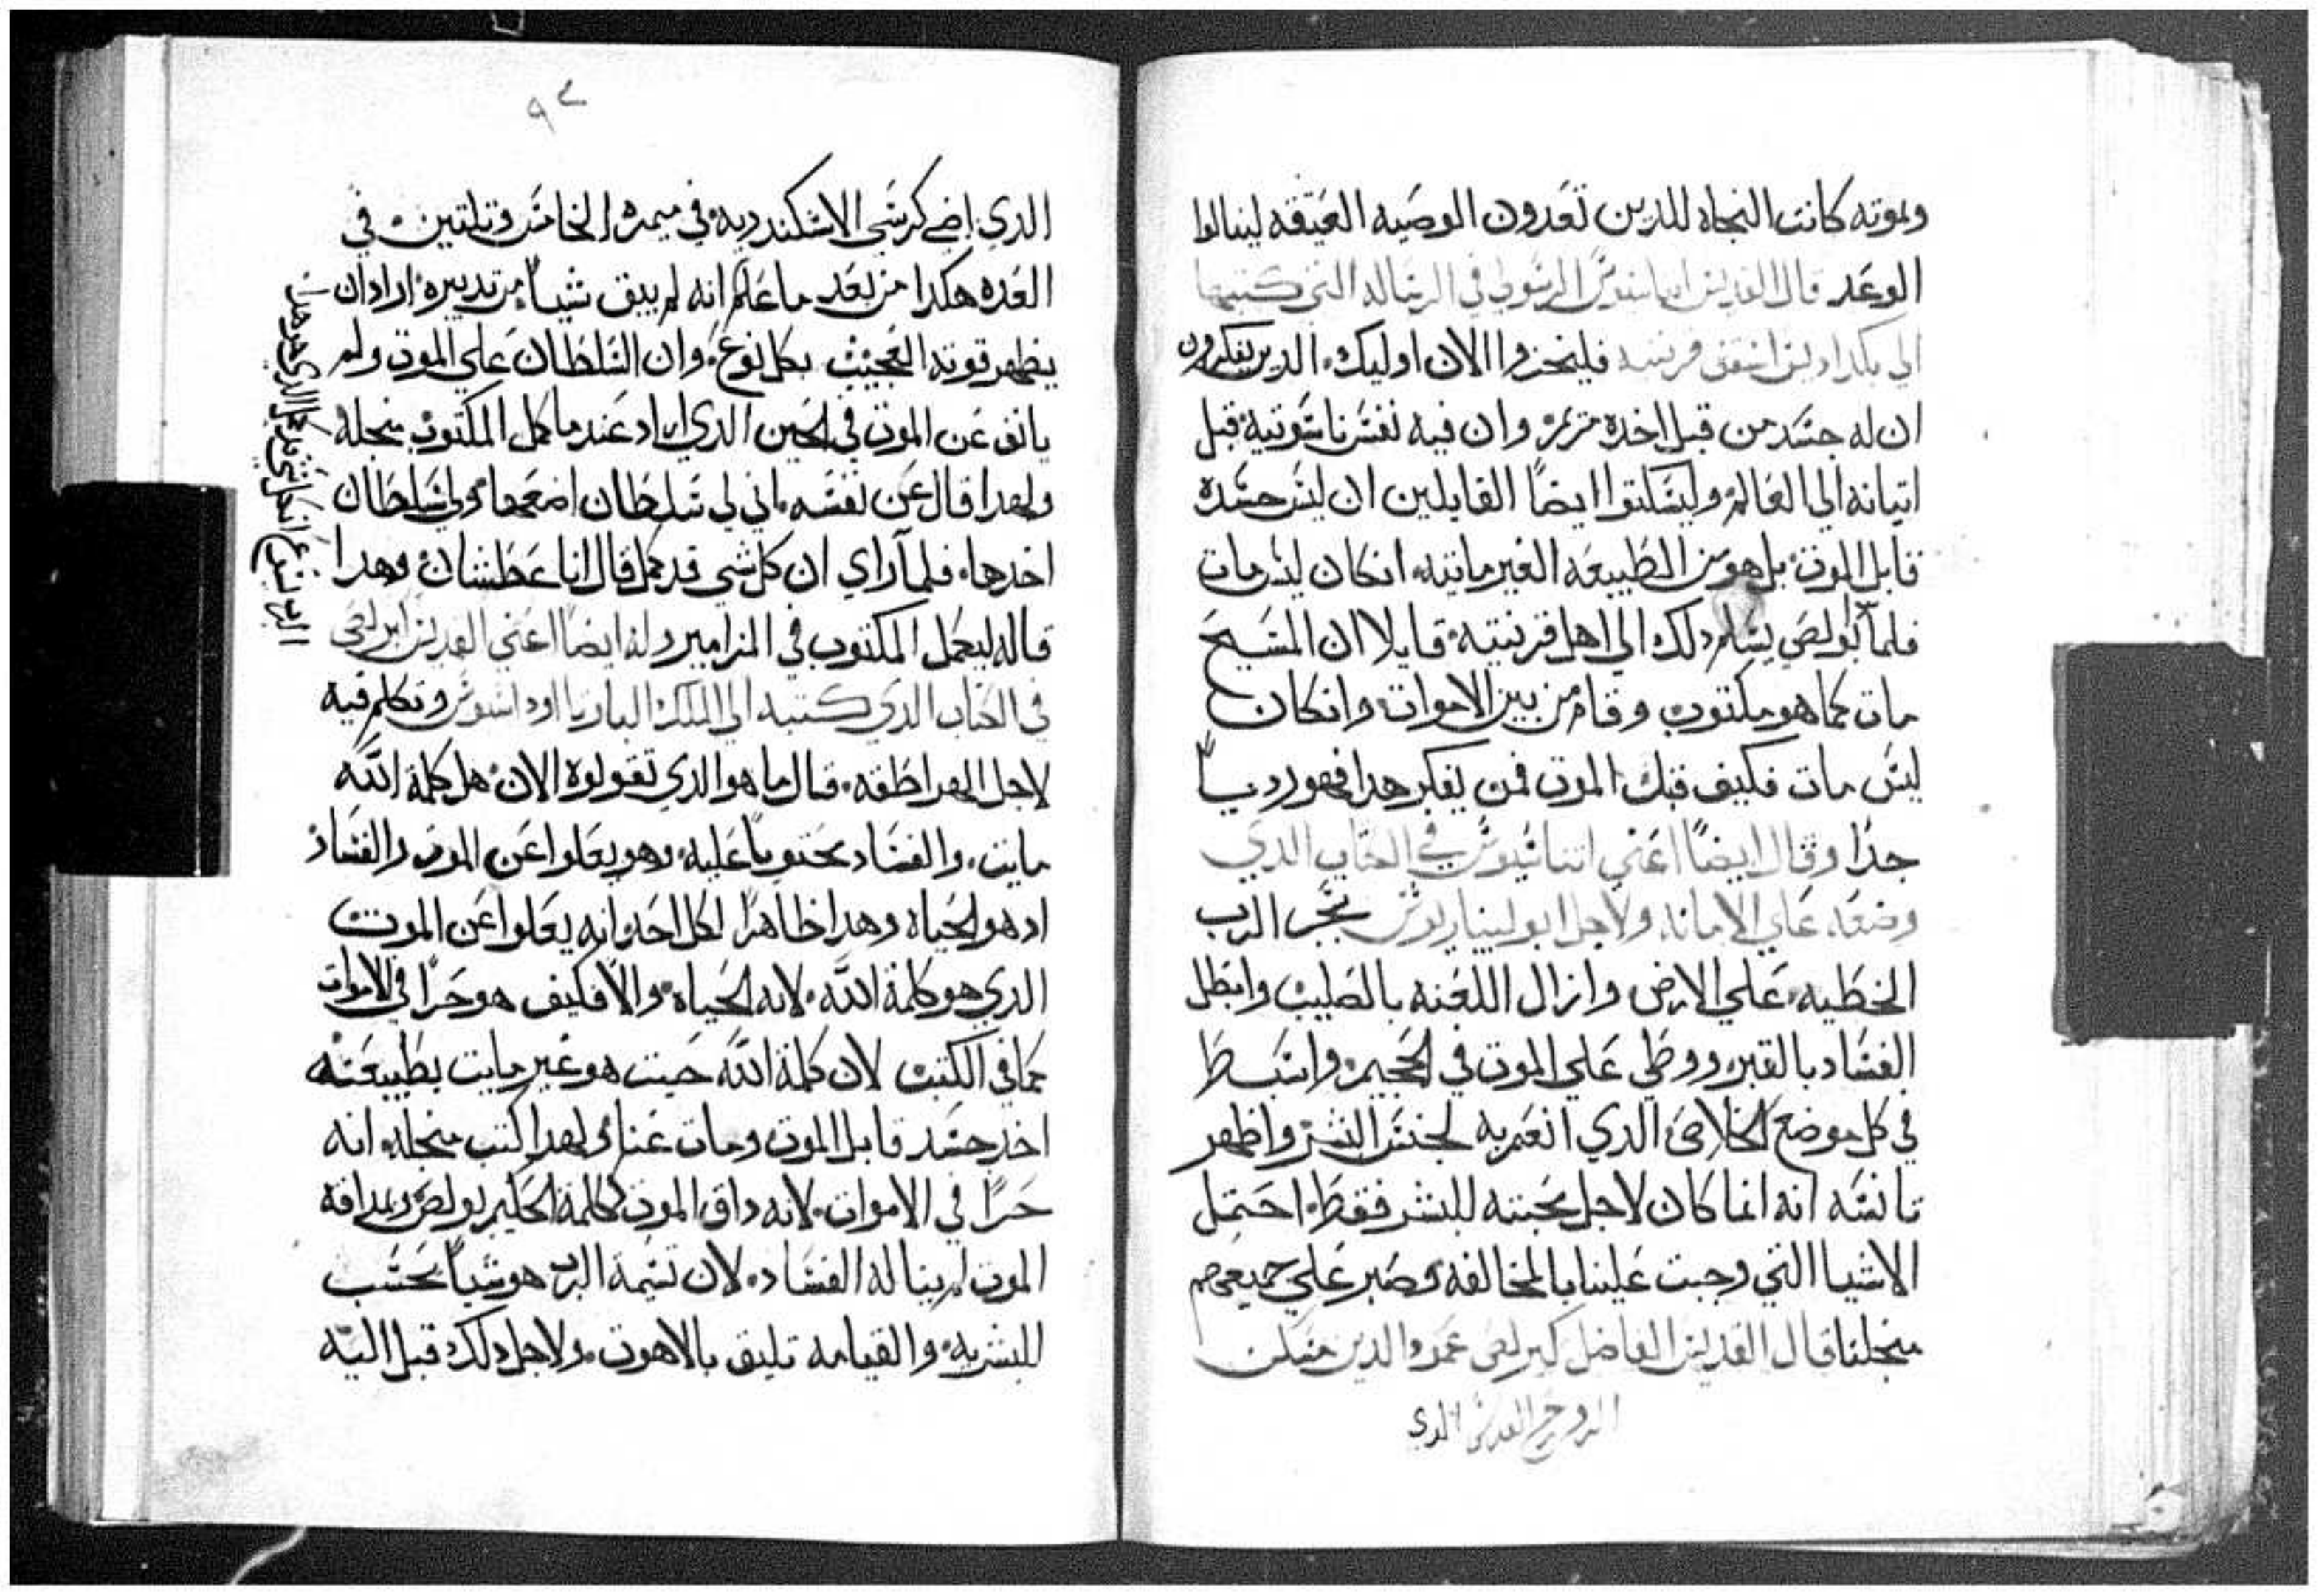 وبموته كانت النجاه للدين تعدون الوصيه العتيقه لينالوا
الوعد قال القديس اتناسيوس الرسولي في الرساله التي كتبها
الي اسقف قرنتيه فلينخزوا الان اوليك الدين يفكرون
ان له جسد من قبل اخده مريم وان فيه نفس ناسوتيه قبل
اتيانه الي العالم وليسكتوا ايضاً القايلين ان ليس جسده
قابل الموت بل هو من الطبيعه الغير مايته انكان ليس مات
فلما بولص يسلم دلك الي اهل قرنيتيه قايلا ان المسيح
مات كما هو مكتوب وقام من بين الاموات وانكان
ليس مات فكيف قبل الموت فمن يفكر هدا فهو رديـاً
جدًا وقال ايضاً اعني اتناسيوس في الكتاب الدي
وضعه علي الامانه ولاجل ابوليناريوس تجبر الرب
الخطيه علي الارض وازال اللعنه بالصليب وابطل
الفساد بالقبر ووطي علي الموت في الجحيم وانبسط
في كل موضع الخلاص الدي انعم به لجنس البشر واظهر
تانسه انه انما كان لاجل محبته للبشر فقط احتمل
الاشيا التي وجبت علينا بالمخالفه وصبر علي جميعهم
منجلنا قال القديس الفاضل كيرلص عمود الدين مسكن
الروح القدس الدي
٩٧
الدي اضي كرسي الاسكندريه في ميمره الخامس وتلتين في
العده هكدا من بعد ما علم انه لم يبق شياً من تدبيره اراد ان
يظهر قوته العجيب بكل نوع وان السلطان علي الموت ولم
يانف عن الموت في الحين الدي اراد عند ما كمل المكتوب منجله
ولهدا قال عن نفسه اني لي سلطان اضعها ولي سلطان
اخدها فلما راي ان كل شي قد كمل قال انا عطشان وهدا
قاله ليكمل المكتوب في المزامير وله ايضاً اعني القديس كيرلص
في الكتاب الدي كتبه الي الملك البار تاوداسيوس وتكلم فيه
لاجل الهراطقه قال ما هو الدي تقولوه الان هل كلمة الله
مايت والفساد محتوياً عليه وهو يعلوا عن الموت والفساد
اد هو الحياه وهدا ظاهرًا لكل احد انه يعلوا عن الموت
الدي هو كلمة الله لانه الحياه والا فكيف هو حرًا في الاموات
كما في الكتب لان كلمة الله حيت هو غير مايت بطبيعته
اخد جسد قابل الموت ومات عنا ولهدا كتب منجله انه
حرًا في الاموات لانه داق الموت ككلمة الحكيم بولص وبمداقة
الموت لم يناله الفساد لان نسمة الرب هو شياً بحسب
البشريه والقيامه تليق بالاهوت ولاجل دلك قبل اليه